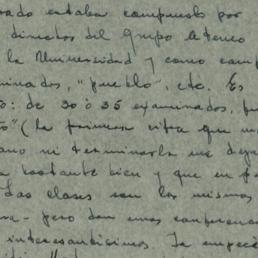 rado estaba compuesto por
directos del Grupo Ateneo
la Universidad y como comp
minados, "pueblo", etc. Es
o: de 30 ó 35 examinados, fu
to" (la primera vitra que me
ano ni terminarla me deja
a bastante bien y que en p
das clases son las mismas
va- pero dan unas conferenci
interesantísimas. Ya empecé